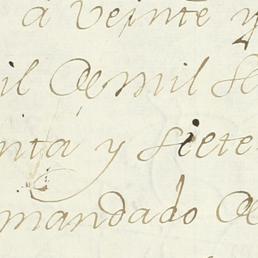 á veinte y
il de mil se
nta y siete
mandado de